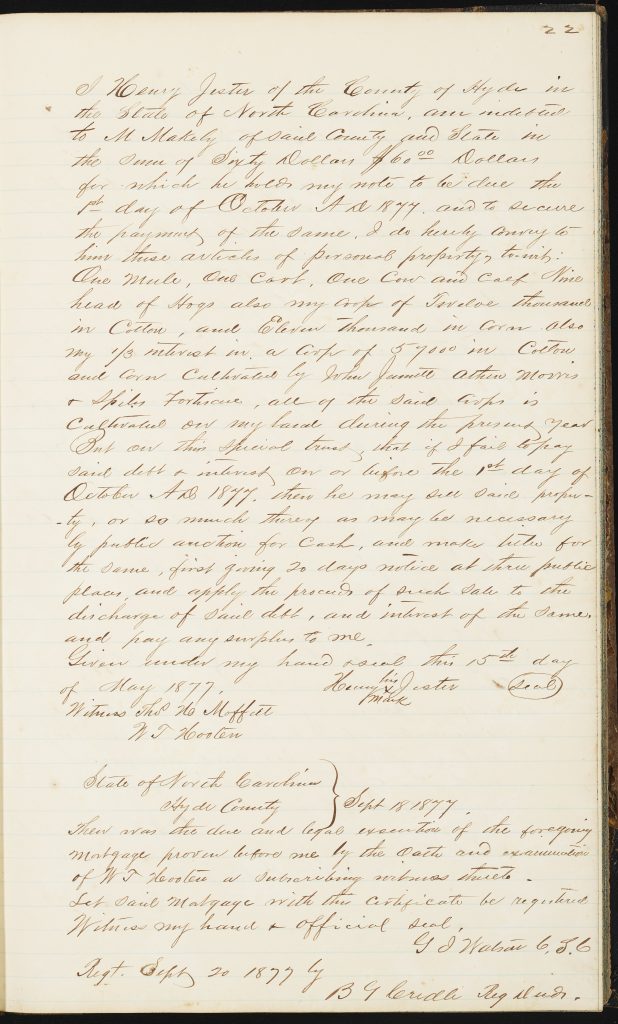 22
I Henry Jester of the County of Hyde in
the State of North Carolina, am indebted
to M Makely of said County and State in
the sum of Sixty Dollars $60 00 Dollars
for which he holds my note to be due the
1st day of October A D 1877. and to secure
the payment of the same, I do hereby convey to
him these articles of personal property, towit:
One Mule, One Cart, One Cow and Calf Nine
head of Hogs also my Crop of Twelve thousand
in Cotton, and Eleven Thousand in Corn also
my 1/3 interest in a Crop of 57000 in Cotton
and Corn Cultivated by John Morris
& Fortiscue, all of the said Crops is
Cultivated on my land during the present year
But on this special trust, that if I fail to pay
said debt & interest on or before the 1st day of
October A D 1877. then he may sell said proper-
-ty, or so much thereof as may be necessary
by public auction for Cash, and make title for
the same, first giving 20 days notice at three public
places, and apply the proceeds of such sale to the
discharge of said debt, and interest of the same,
and pay any surplus to me.
Given under my hand & seal this 15th day
of May 1877. Henry his X mark Jester (Seal)
Witness Thos H Moffett
W T Hooten
State of North Carolina
Hyde County } Sept 18 1877
Then was the due and legal execution of the foregoing
Mortgage proven before me by the Oath and examination
of W T Hooten a subscribing witness thereto.
Let said Mortgage with this Certificate be registered
Witness my hand & official seal.
G I Watson C. S. C
Regt. Sept 20 1877 by
B G Credle Reg Deeds.